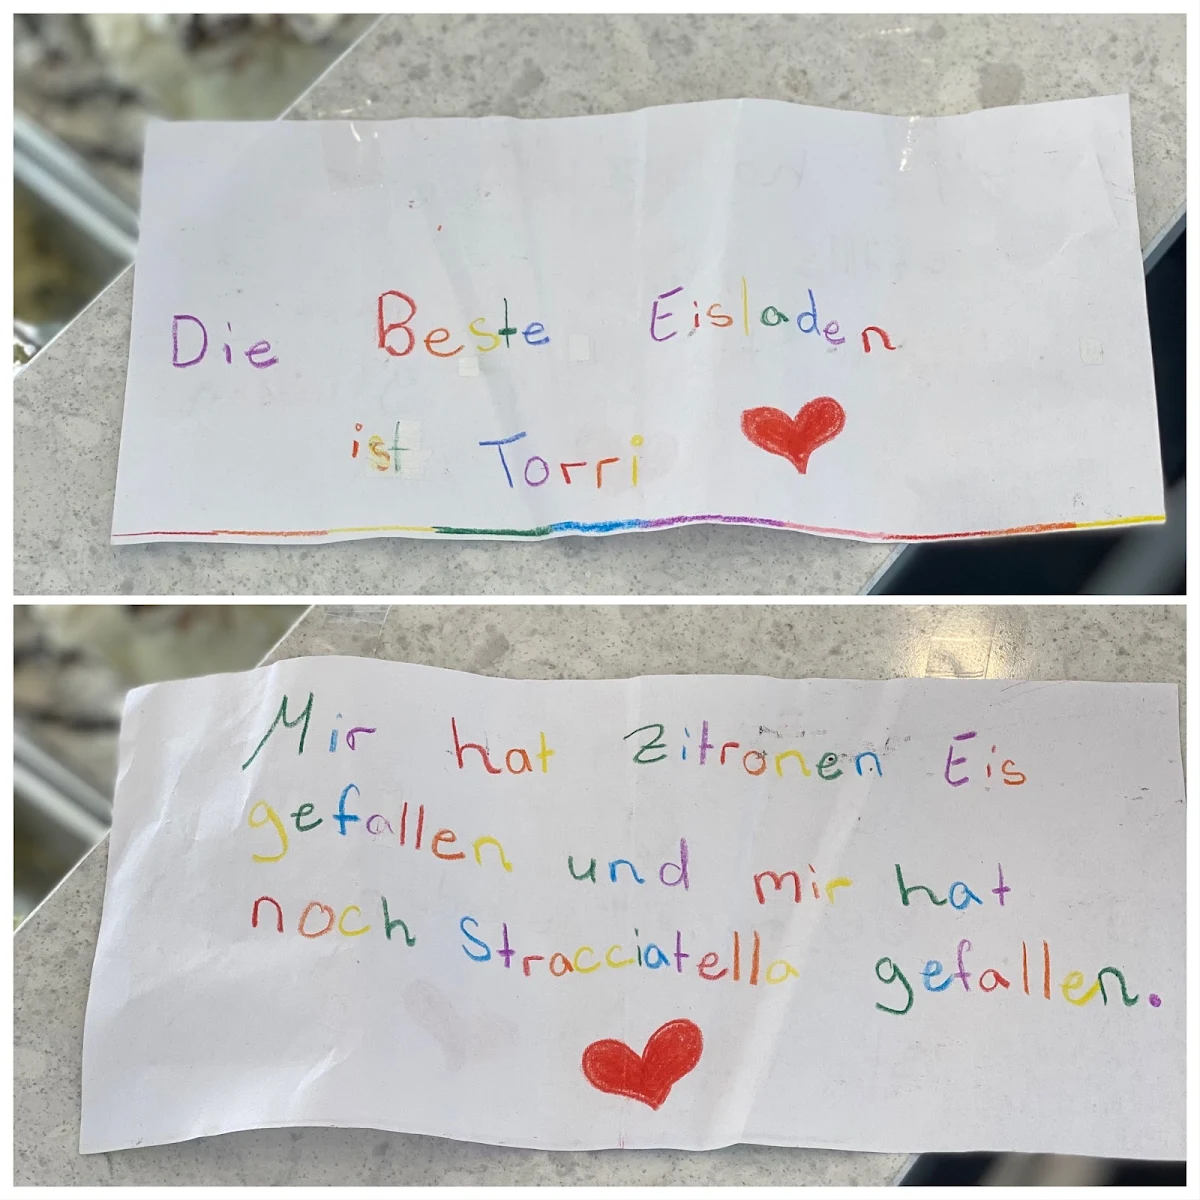 Die Beste Eisladen
ist Torri
Mir hat Zitronen Eis
gefallen und mir hat
noch Stracciatella gefallen.